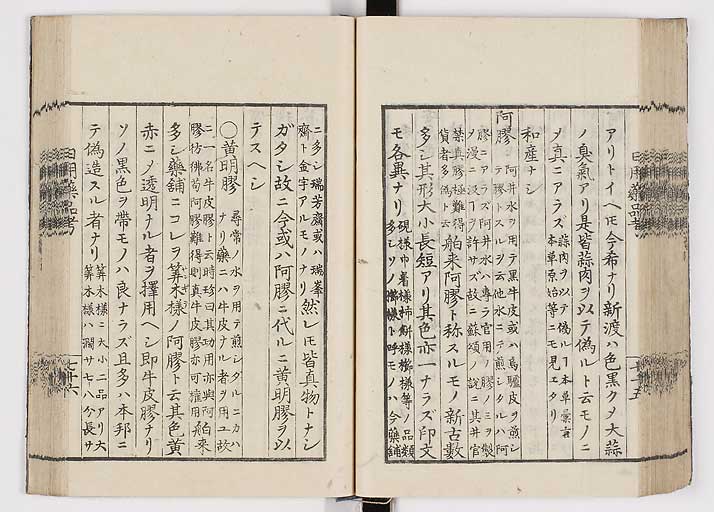 アリトイヘ𪜈今希ナリ新渡ハ色黒クメ大蒜
ノ臭氣アリ是皆蒜肉ヲ以テ偽ルト云モノニ
メ真ニアラズ
蒜肉ヲ以テ偽ルヿ本草彙言
本草原始等ニモ見エタリ
和産ナシ
阿膠
阿井水ヲ用テ黒牛皮或ハ烏驢皮ヲ煎シ
テ膠トスルヲ云他水ニテ煎シタルハ阿
膠ニアラズ阿井水ハ專ラ官用ノ膠ノミヲ製
ヲ汲ヿヲ許サズ故ニ蘇頌ノ説ニ其井官
禁真膠極難得
貨者多偽ト云
舶来阿膠ト称スルモノ新古數
多シ其形大小長短アリ其色亦一ナラズ印文
モ各異ナリ
硯様巾着様柿餅様櫛様等ノ品類
多シソノ櫛様ト呼モノハ今藥舗
ニ多シ瑞芳齋或ハ瑞峯
齋ト金字アルモノナリ
然レ𪜈皆真物トナシ
ガタシ故ニ今或ハ阿膠ニ代ルニ黄明膠ヲ以
テスヘシ
〇黄明膠
尋常ノ水ヲ用テ煎シタルニカハ
ナリ藥ニハ牛皮ナル者ヲ用ユ故
ニ一名牛皮膠ト云時珍曰其功用亦與阿
膠彷彿苟阿膠難得則真牛皮膠亦可權用
舶来
多シ藥舗ニコレヲ算木様ノ阿膠ト云其色黄
赤ニメ透明ナル者ヲ擇用ヘシ即牛皮膠ナリ
ソノ黒色ヲ帶モノハ良ナラズ且多ハ本邦ニ
テ偽造スル者ナリ
算木様ニ大小二品アリ大
算木様ハ濶サ七八分長サ
日用藥品考
日用藥品考